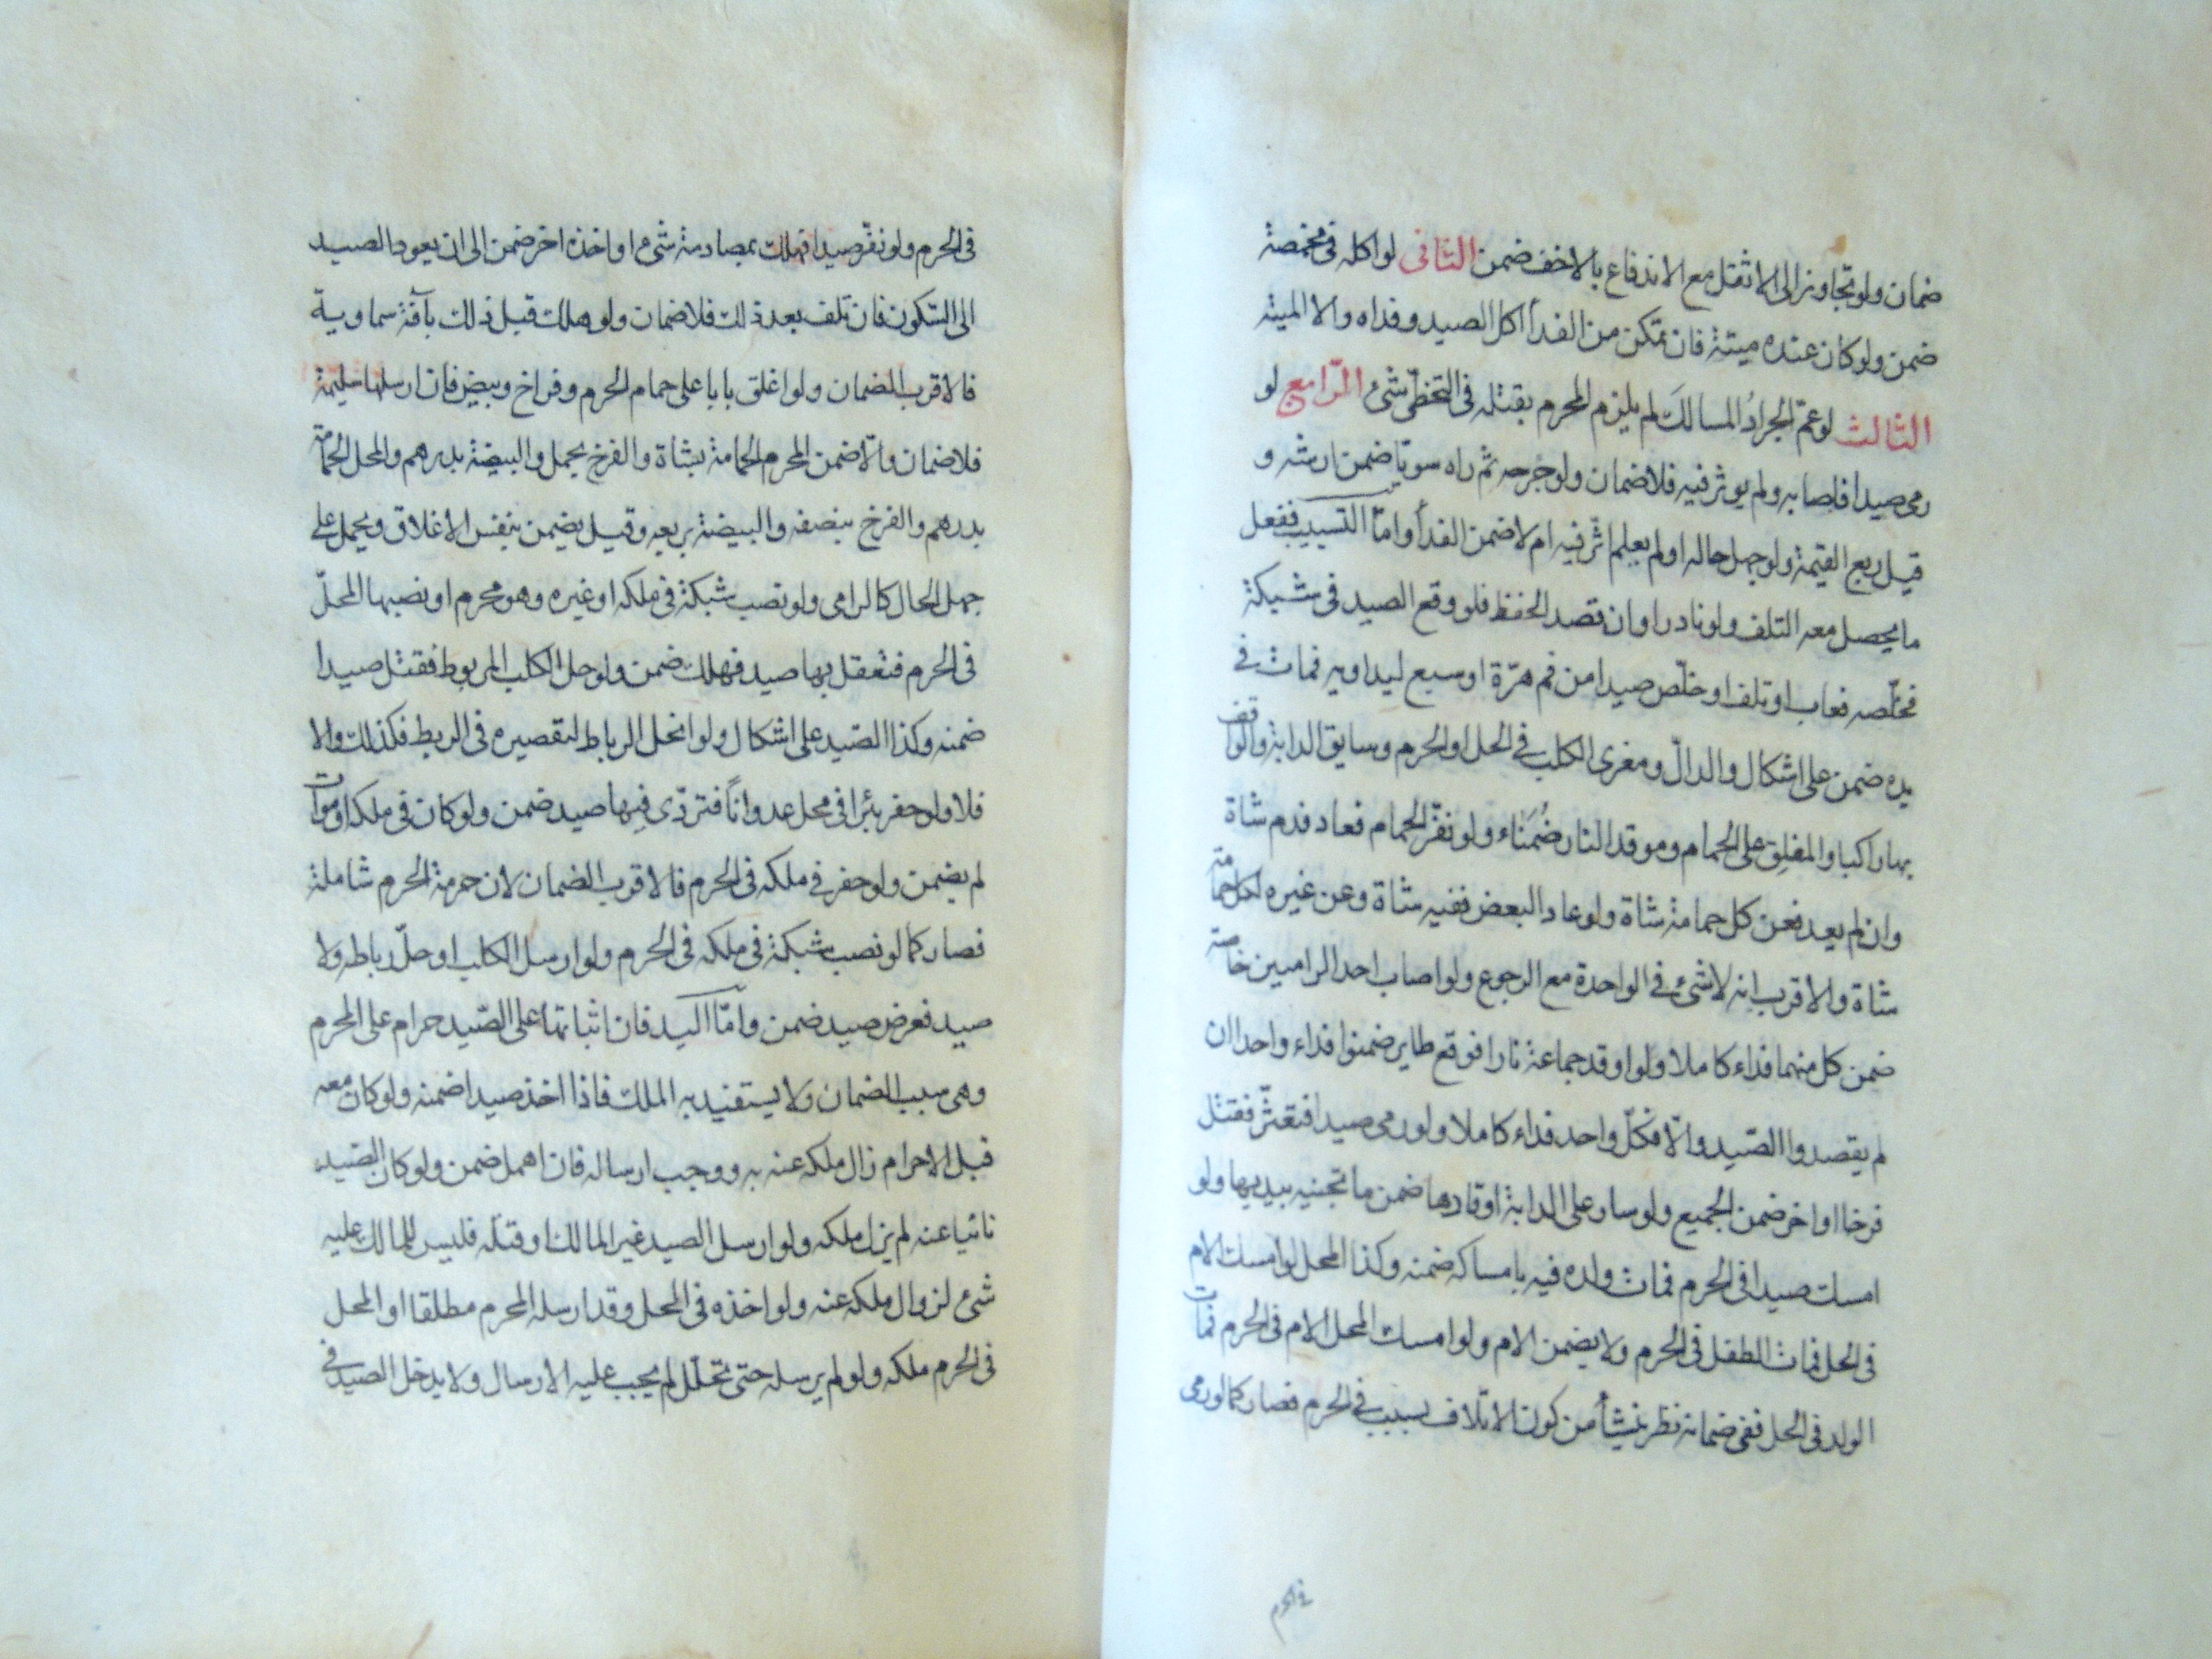 ضمان ولو تجاوز الى الاثقل مع الاندفاع بالاخف ضمن الثانى لو اكله فى مخمصة
ضمن ولو كان عنده ميتة فان تمكن من الفدأ اكل الصيد وفداه والا الميتة
الثالث لو عمّ الجرادُ المسالكَ لم يلزم المحرم بقتله فى التخطّى شئ الرّابع لو
رمى صيدا فاصابه ولم يوثر فيه فلا ضمان ولو جرحه ثم راه سويّا ضمن ارشه و
قيل ربع القيمة ولو جهل حاله او لم يعلم اثّر فيه ام لا ضمن الفدأ وامّا التسبيب ففعل
ما يحصل معه التلف ولو نادرا وان قصد الحفظ فلو وقع الصيد فى شبكة
فخلّصه فعاب او تلف او خلّص صيدا من فم هرّة او سبع ليداويه فمات في
يده ضمن على اشكال والدالّ ومغرى الكلب في الحل او الحرم وسايق الدابة والواقف
بها راكبا والمغلِق على الحمام وموقد النار ضُمَناء ولو نفّر الحمام فعاد فدم شاة
وان لم يعد فعن كل حمامة شاة ولو عاد البعض ففيه شاة وعن غيره لكل حمامة
شاة والاقرب انه لا شئ في الواحدة مع الرجوع ولو اصاب احد الراميين خاصة
ضمن كل منهما فداء كاملا ولو اوقد جماعة نارا فوقع طاير ضمنوا فداء واحدا ان
لم يقصدوا الصّيد والّا فكلّ واحد فداء كاملا ولو رمى صيدا فتعثّر فقتل
فرخا او اخر ضمن الجميع ولو سار على الدابة او قادها ضمن ما تجنيه بيديها ولو
امسك صيدا فى الحرم فمات ولده فيه بامساكه ضمنه وكذا المحل لو امسك الام
فى الحل فمات الطفل فى الحرم ولا يضمن الام ولو امسك المحل الام فى الحرم فمات
الولد فى الحل ففى ضمانه نظر ينشأ من كون الاتلاف بسبب في الحرم فصار كما لو رمى
في الحرم
فى الحرم ولو نفّر صيدا فهلك بمصادمة شئ او اخذه اخر ضمن الى ان يعود الصيد
الى السّكون فان تلف بعد ذلك فلا ضمان ولو هلك قبل ذلك بآفة سماوية
فالاقرب الضمان ولو اغلق بابا على حمام الحرم وفراخ وبيض فان ارسلها سليمة
فلا ضمان والّا ضمن المحرم الحمامة بشاة والفرخ بحمل والبيضة بدرهم والمحل الحمامة
بدرهم والفرخ بنصفه والبيضة بربعه وقيل يضمن بنفس الاغلاق ويحمل على
جهل الحال كالرامى ولو نصب شبكة فى ملكه او غيره وهو محرم او نصبها المحلّ
فى الحرم فتعقل بها صيد فهلك ضمن ولو حل الكلب المربوط فقتل صيدا
ضمنه وكذا الصّيد على اشكال ولو انحل الرباط لتقصيره فى الربط فكذلك والا
فلا ولو حفر بئرا فى محل عدوانًا فتردّى فيها صيد ضمن ولو كان فى ملكه او موات
لم يضمن ولو حفر في ملكه فى الحرم فالاقرب الضمان لان حرمة الحرم شاملة
فصار كما لو نصب شبكة فى ملكه فى الحرم ولو ارسل الكلب او حلّ رباطه ولا
صيد فعرض صيد ضمن وامّا اليد فان اثباتها على الصّيد حرام على المحرم
وهى سبب الضمان ولا يستفيد به الملك فاذا اخذ صيدا ضمنه ولو كان معه
قبل الاحرام زال ملكه عنه به ووجب ارساله فان اهمل ضمن ولو كان الصّيد
نائيا عنه لم يزل ملكه ولو ارسل الصيد غير المالك او قتله فليس للمالك عليه
شئ لزوال ملكه عنه ولو اخذه فى المحل وقد ارسله المحرم مطلقا او المحل
فى الحرم ملكه ولو لم يرسله حتى تحلّل لم يجب عليه الارسال ولا يدخل الصيد في